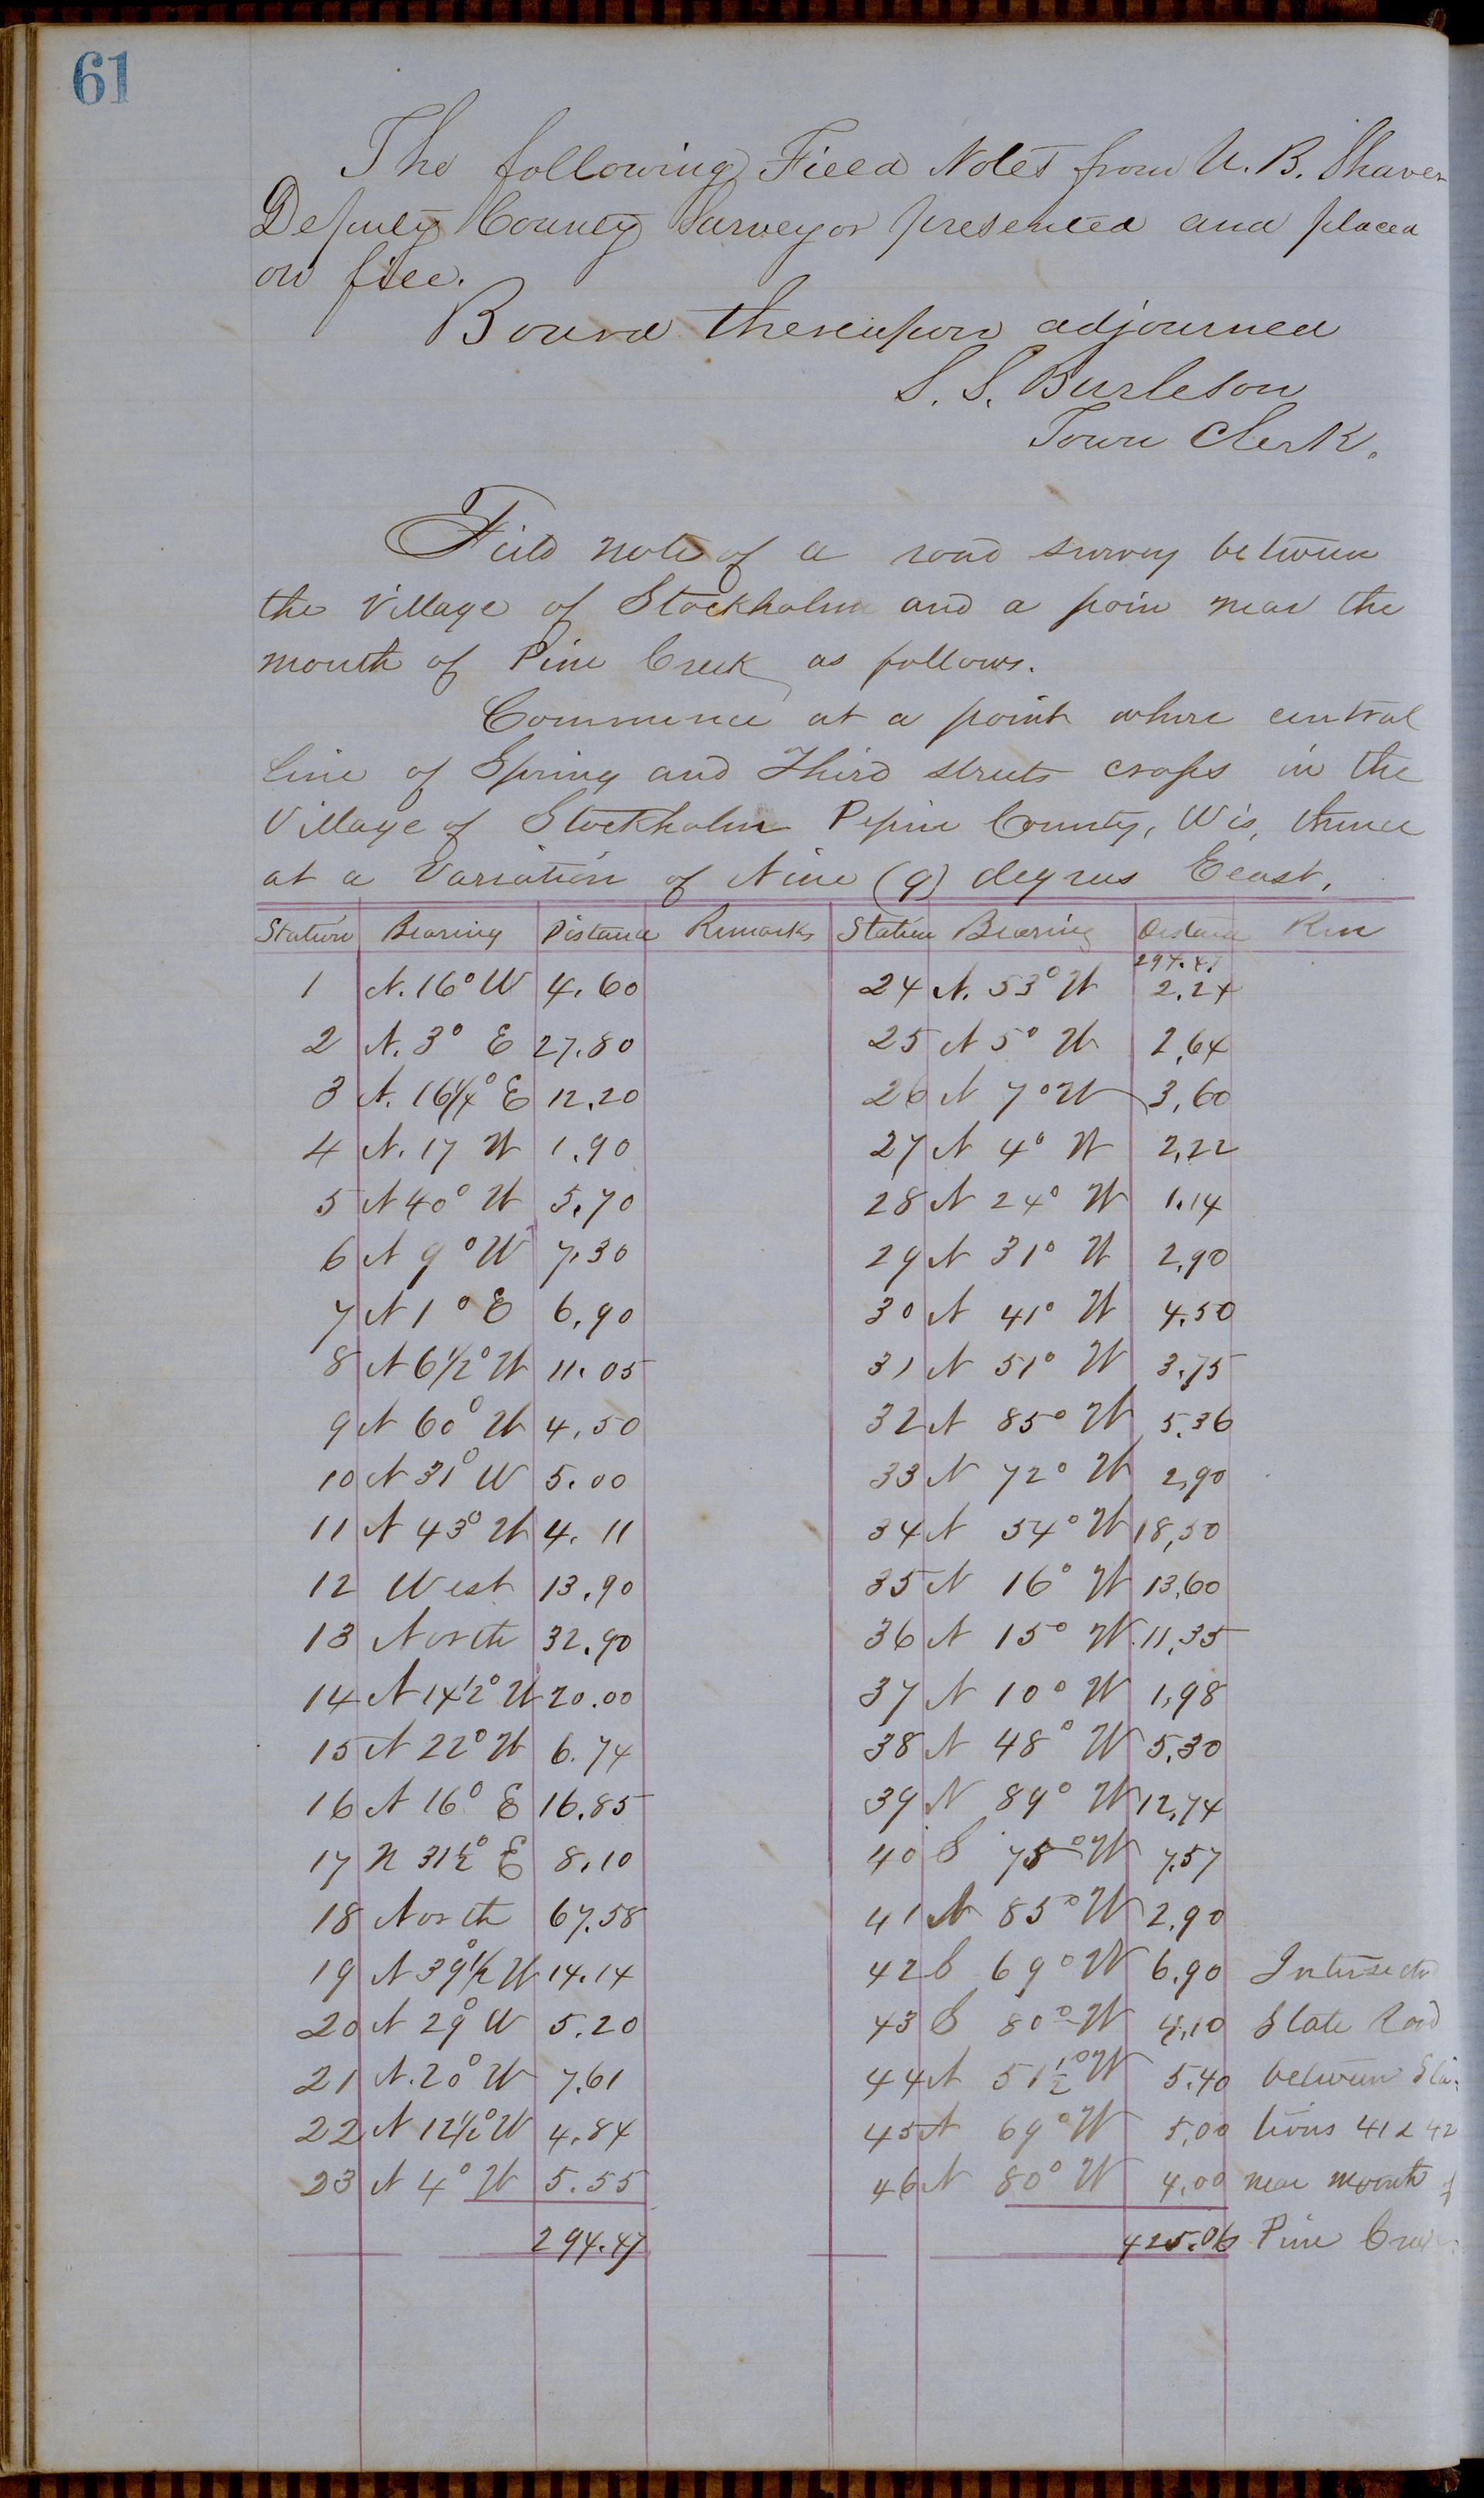 61
The following Field Notes from U. B. Shaver
Deputy County Surveyor presented and placed
on file.
Board thereupon adjourned
S. S. Burleson
Town Clerk.
Field note of a road survey between
the Village of Stockholm and a poin near the
mouth of Pine Creek as follows.
Commence at a point where central
line of Spring and Third streets cross in the
Village of Stockholm Pepin County, Wis, thence
at a Variation of Nine (9) degrees East.
Station Bearing Distance Remarks Station Bearing Distance Rem
294.47
1 N. 16° W 4.60 24 N. 53° W 2.24
2 N. 3° E 27.80 25 N 5° W 2.64
3 N. 16 1/4° E 12.20 26 N 7° W 3,60
4 N. 17 W 1.90 27 N 4° W 2,22
5 N 40° W 5.70 28 N 24° W 1.14
6 N 9° W 7.30 29 N 31° W 2,90
7 N 1° E 6.90 30 N 41° W 4.50
8 N 6 1/2° W 11.05 31 N 51° W 3.75
9 N 60° W 4.50 32 N 85° W 5.36
10 N 31° W 5.00 33 N 72° W 2,90
11 N 43° W 4.11 34 N 54° W 18,50
12 West 13.90 35 N 16° W 13,60
13 North 32.90 36 N 15° W. 11,35
14 N 14 1/2° W 20.00 37 N 10° W 1,98
15 N 22° W 6.74 38 N 48° W 5.30
16 N 16° E 16.85 39 N 89° W 12,74
17 N 31 1/2° E 8.10 40 S 75° W 7.57
18 North 67.58 41 N 85° W 2.90
19 N 39 1/2° W 14.14 42 S 69° W 6.90 Intersects
20 N 29° W 5.20 43 S 80° W 4,10 State Road
21 N. 20° W 7.61 44 N 51 1/2° W 5.40 between Sta-
22 N 12 1/2° W 4.84 45 N 69° W 5,00 tions 41 & 42
23 N 4° W 5.55 46 N 80° W 4,00 near mouth of
294.47 425.06 Pine Creek